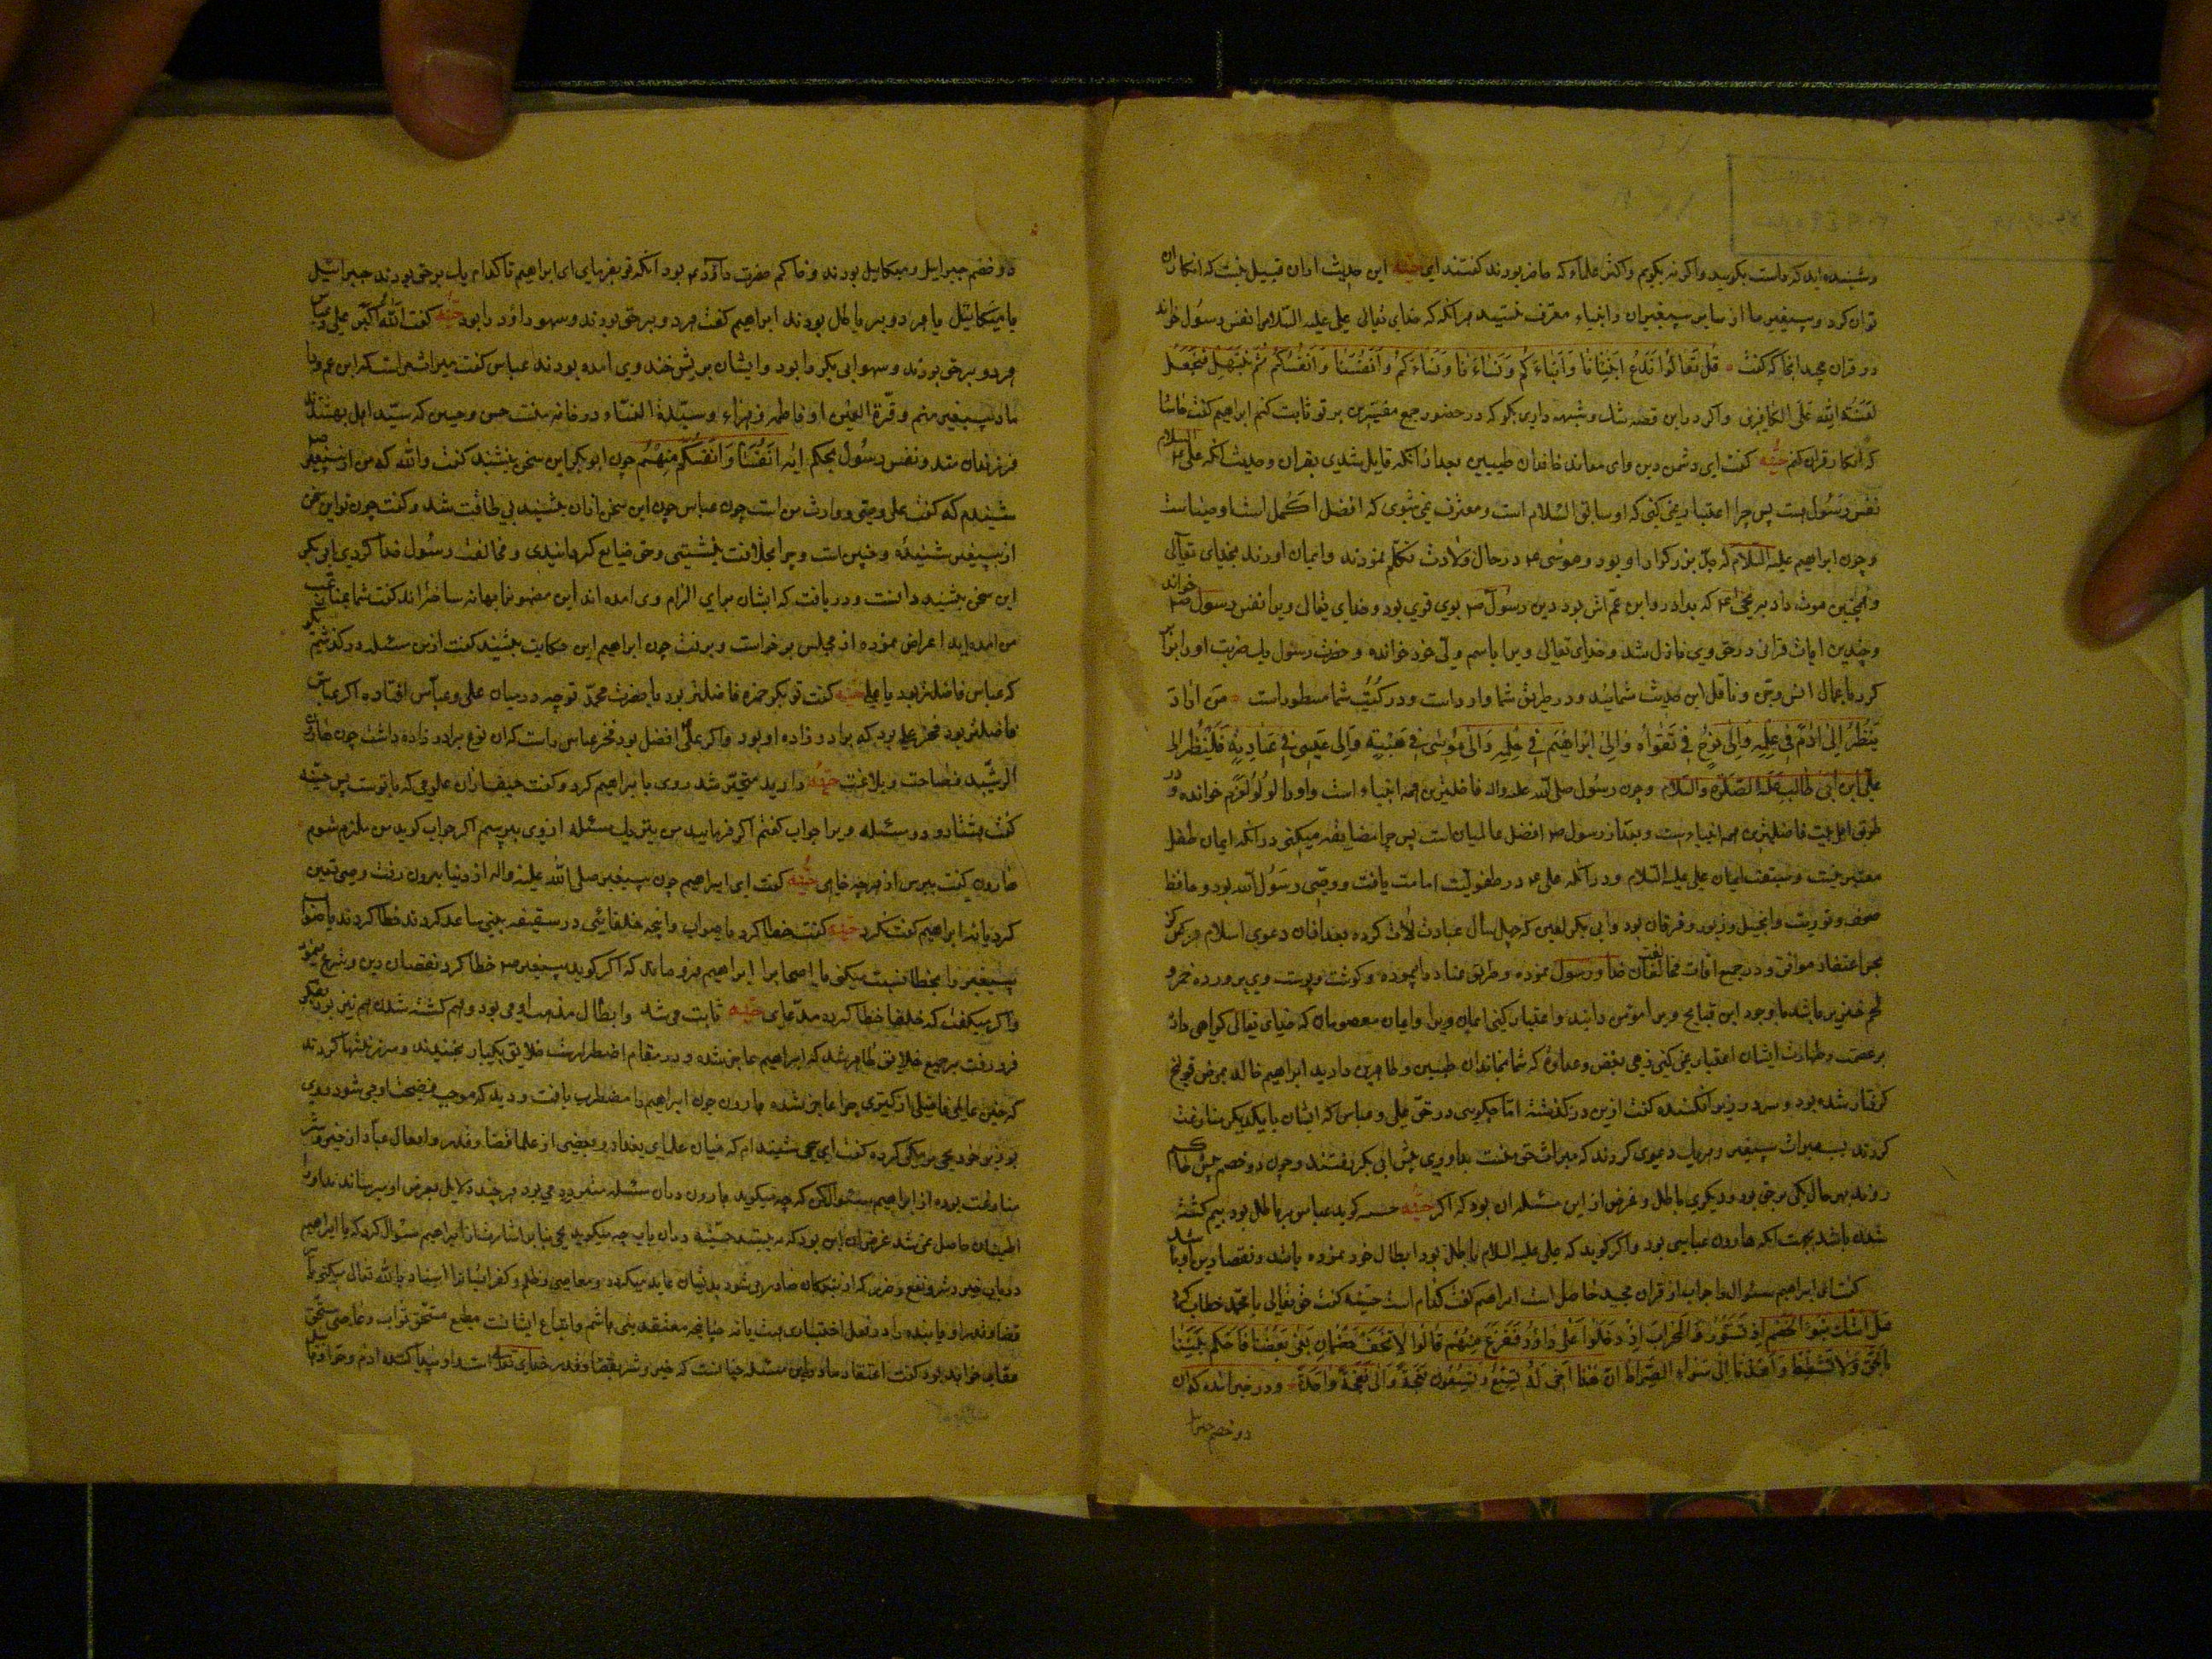 وشنیده اید که راست بکویید واکر نه بکویم واکثر علماء که حاضر بودند کفتند ای حسنیه این حدیث ازان قبیل نیست که انکار ان
توان کرد وپیغمبر ما از سایر پیغمبران وانبیاء معزز هستید هرانکه که خدای تعالی علی علیه السّلام را نفس رسول خواند
در قران مجید انجا که کفت قُل تَعَالَوا نَدعُ اَبنَاءَنَا وَاَبنَاءَکُم وَنِسَاءَنَا وَنِسَاءَکُم وَاَنفُسَنَا وَاَنفُسَکُم ثُمَّ نَبتَهِل فَنَجعَل
لَعنَتَ اللهِ عَلَی الکَافِرین واکر در این قصه شک وشبهه داری بکو که در حضور جمع مفسّرین بر تو ثابت کنم ابراهیم کفت حاشا
که انکار قران کنم حسنیه کفت ای دشمن دین وای معاند خاندان طیبین بعد از انکه قایل شدی بقران وحدیث انکه علی علیه السلام
نفس رسول است پس چرا اعتبار نمی کنی که او سابق السلام است ومعترف نمی شوی که افضل اکمل است
وچون ابراهیم علیه السلام که جدّ بزرکوار او بود وموسی ع در حال ولادت تکلّم نمودند وایمان اوردند بخدای تعالی
وهمچنین که برادر وابن عمّ اش بود دین رسول ص بوی قوی بود وخدای تعالی ویرا نفس رسول ص خواند
وچندین ایات قرانی در حق وی نازل شد وخدای تعالی ویرا باسم ولی خود خوانده وحضرت رسول یک ضربت او را برابر
کرد با اعمال انس وجن وناقل این حدیث شمایید ودر طریق شما وارد است ودر کُتُب شما مسطور است مَن اَرَادَ
یَنظُرُ اِلی ادَمَ فِی عِلمِهِ وَاِلی نُوحٍ فِی تَقواهُ وَاِلی اِبرَاهِیمَ فِی حِلمِهِ وَاِلی مُوسی فِی هَیبَتِهِ وَاِلی عِیسی فِی عِبَادَتِهِ فَلیَنظُر اِلی
عَلِیّ ابنِ اَبی طَالِب عَلَیهِ الصَّلوةُ والسَّلام وچون رسول صلی الله علیه واله فاضلترین همه انبیاء است واو را خوانده
طریق اهل بیت فاضلترین همه انبیاء است وبعد از رسول ص افضل عالمیان است پس چرا مضایقه میکنی در انکه ایمان طفل
معتبر نیست وسبقت ایمان علی علیه السّلام ودر انکه علی ع در طفولیت امامت یافت ووصّی رسول الله بود وحافظ
صحف وتوریت وانجیل وزبور وفرقان بود وابی بکر لعین که چهل سال عبادت لات کرده بعد ازان دعوی اسلام
اعتقاد موافق ودر جمیع اوقات مخالفت خدا ورسول نموده وطریق عناد را پیموده وکوشت وپوست وی پرورده خمر و
لحم خنزیر باشد با وجود این قبایح ویرا مؤمن دانید واعتبار کنی ایمان ویرا وایمان معصومان که خدای تعالی کواهی داد
بر عصمت وطهارت ایشان اعتبار نمی کنی زهی بغض وعداوت که شما بخاندان طیبین وطاهرین دارید ابراهیم خالد بمرض قولنج
کرفتار شده بود وسر در زیر افکنده کفت ازین در کذشته امّا چکویی در حقّ علی وعباس که ایشان با یکدیکر منازعت
کردند بسبب میراث پیغمبر وهر یک دعوی کردند که میراث حق منست بداوری پیش ابی بکر رفتند وچون دو خصم پیش حاکم
روند بهر حال یکی بر حق بود ودیکری باطل وغرض از این مسئله ان بود که اکر حسنیه کوید عباس بر باطل بود بیم کشته
شدن باشد بجهت انکه هارون عباسی بود واکر کوید که علی علیه السلام باطل بود ابطال خود نموده باشد
کفت ای ابراهیم سئوال را جواب از قران مجید حاصل است ابراهیم کفت کدام است حسنیه کفت حق تعالی با محمّد خطاب کرد
هَل اَتَیکَ نَبَؤُ الخَصمِ اِذ تَسَوَّرُوا المِحرَابَ اِذ دَخَلُوا عَلی دَاوُدَ فَفَزِعَ مِنهُم قَالُوا لَا تَخَف خَصمَانِ بَغی بَعضُنَا فَاحکُم بَینَنَا
بِالحَقِّ وَلَا تُشطِط وَاهدِنَا اِلی سَوَاءِ الصِّرَاط اِنَّ هذَا اَخِی لَهُ تِسعٌ وَتِسعُونَ نَعجَةً وَلِیَ نَعجَةٌ وَاحِدَة ودر خبر امده که ان
دو خصم جبرا
دو خصم جبرایل ومیکاییل بودند وحاکم حضرت داود ع بود انکه تو بفرمای ای ابراهیم تا کدام یک بر حق بودند جبراییل
یا میکاییل یا هر دو بر باطل بودند ابراهیم کفت هر دو بر حق بودند وسهو داود را بود حسنیه کفت الله اکبر علی وعباس
هر دو بر حق بودند وسهو ابی بکر را بود وایشان بریش خند وی امده بودند عباس کفت میراث مراست که ابن عم وبا
ماد پیغمبر منم وقرّة العین او فاطمه زهراء وسیّدة النساء در خانه منست حسن وحسین که سیّد اهل بهشتند
فرزندان منند ونفس رسول بحکم ایه اَنفُسَنَا وَاَنفُسَکُم منم چون ابو بکر این سخن بشنید کفت والله که من از پیغمبر ص
شنیدم که کفت علی وصّی ووارث من است چون عباس چون این سخن ازان بشنید بی طاقت شد وکفت چون تو این سخن
از پیغمبر شنیدۀ وچنین است وچرا بخلافت نشستی وحق ضایع کردانیدی ومخالفت رسول خدا کردی ابی بکر
این سخن بشنید دانست ودریافت که ایشان برای الزام وی امده اند این مضمون را بهانه ساخته اند کفت شما
من امده اید اعراض نموده از مجلس برخواست وبرفت چون ابراهیم این حکایت بشنید کفت ازین مسئله در کذشتم
که عباس فاضلتر بود یا علی حسنیه کفت تو بکو حمزه فاضلتر بود یا حضرت محمّد تو چه در میان علی وعباس افتاده اکر عباس
فاضلتر بود فخر علی بود که برادر زاده او بود واکر علی افضل بود فخر عباس راست که ان نوع برادر زاده داشت چون هارون
الرشّید فصاحت وبلاغت حسنیه را دید متحیّر شد روی با ابراهیم کرد وکفت حیف ازان علمی که با توست پس حسنیه
کفت هشتاد ودو مسئله ویرا جواب کفتم اکر فرمایید من نیز یک مسئله ازوی بپرسم اکر جواب کوید من ملزم شوم
هارون کفت بپرس از هر چه خواهی حسنیه کفت ای ابراهیم چون پیغمبر صلی الله علیه واله از دنیا بیرون رفت وصی تعیین
کرد یا نه ابراهیم کفت نکرد حسنیه کفت خطا کرد یا صواب وانچه خلفائی در سقیفه بنی ساعد کردند خطا کردند یا صواب
پیغمبر را بخطا نسبت میکنی یا اصحاب را ابراهیم فرو ماند که اکر کوید پیغمبر ص خطا کرد نقصان دین وشرع بود
واکر میکفت که خلفا خطا کردند مدّعای حسنیه ثابت می شد وابطال مذهب او می بود وهم کشته شدن هم نیز بود
فرو رفت بر جمیع خلایق ظاهر شد که ابراهیم عاجز شده ودر مقام اضطرابست خلایق یکبار بخندیدند وسرزنشها کردند
که چنین عالمی فاضلی از کنیزی چرا عاجز شده هارون چون ابراهیم را مضطرب یافت ودید که موجب فضیحت او می شود روی
بوزیر خود یحیی برمکی کرده کفت ای یحیی شنیده ام که میان علمای بغداد وبعضی از علما قضا وقدر وافعال عباد از خیر وشر
منازعت بوده از ابراهیم سئوال کن که چه میکوید هارون دران مسئله متردد می بود هر چند دلایل بعرض او میرساندند او را
اطمینان حاصل نمی شد غرض ان بود که حسنیه دران باب چه میکوید یحیی بنا بر اشارت از ابراهیم سئوال کرد که یا ابراهیم
در باب خیر وشر ونفع وضرر که از بندکان صادر می شود بدیشان عاید میکردد ومعاصی وظلم وکفر ایشانرا اسناد بالله تعالی میکنی یا
قضا وقدر او یا بنده را در فعل اختیاری هست یا نه چنانچه معتقد بنی هاشم واتباع ایشانست مطیع مستحّق ثواب وعاصی مستحّق
عقاب خواهد بود کفت اعتقاد ما در این مسئله چنانست که خیر وشر بقضا وقدر خدای تعالی است